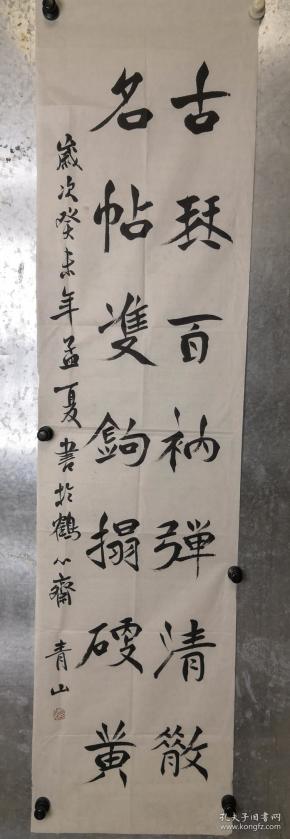 古琹百衲弹清散
名帖雙鉤搨硬黄
歲次癸未年孟夏書於鶴心齋 青山
孔夫子旧书网